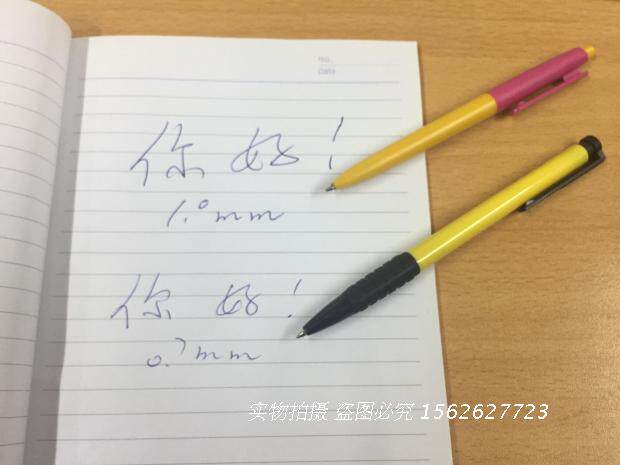 No.
Date
你好!
1.0mm
你好!
0.7mm
实物拍摄 盗图必究 1562627723